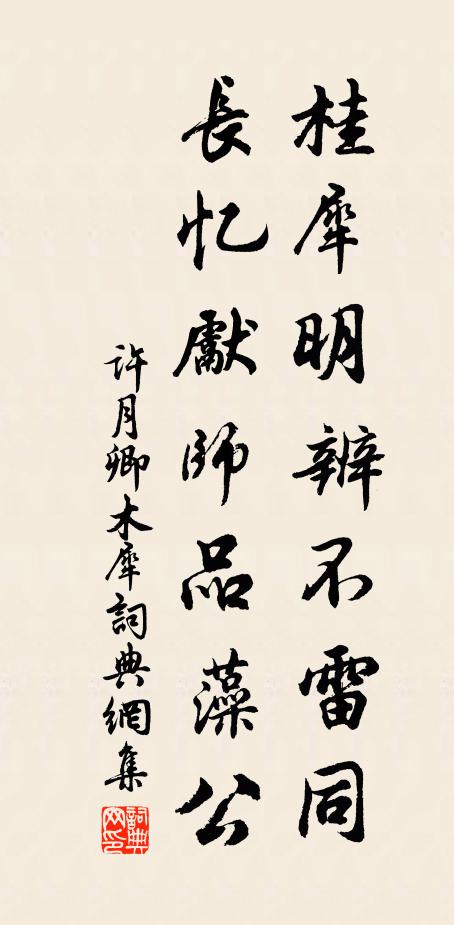 桂犀明辨不雷同
長忆獻師品藻公
许月卿木犀詞典網集
詞典网印